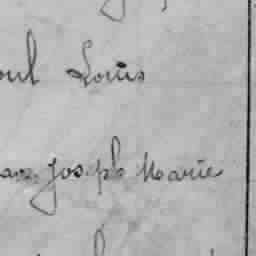 oul Louis
Joseph Marie